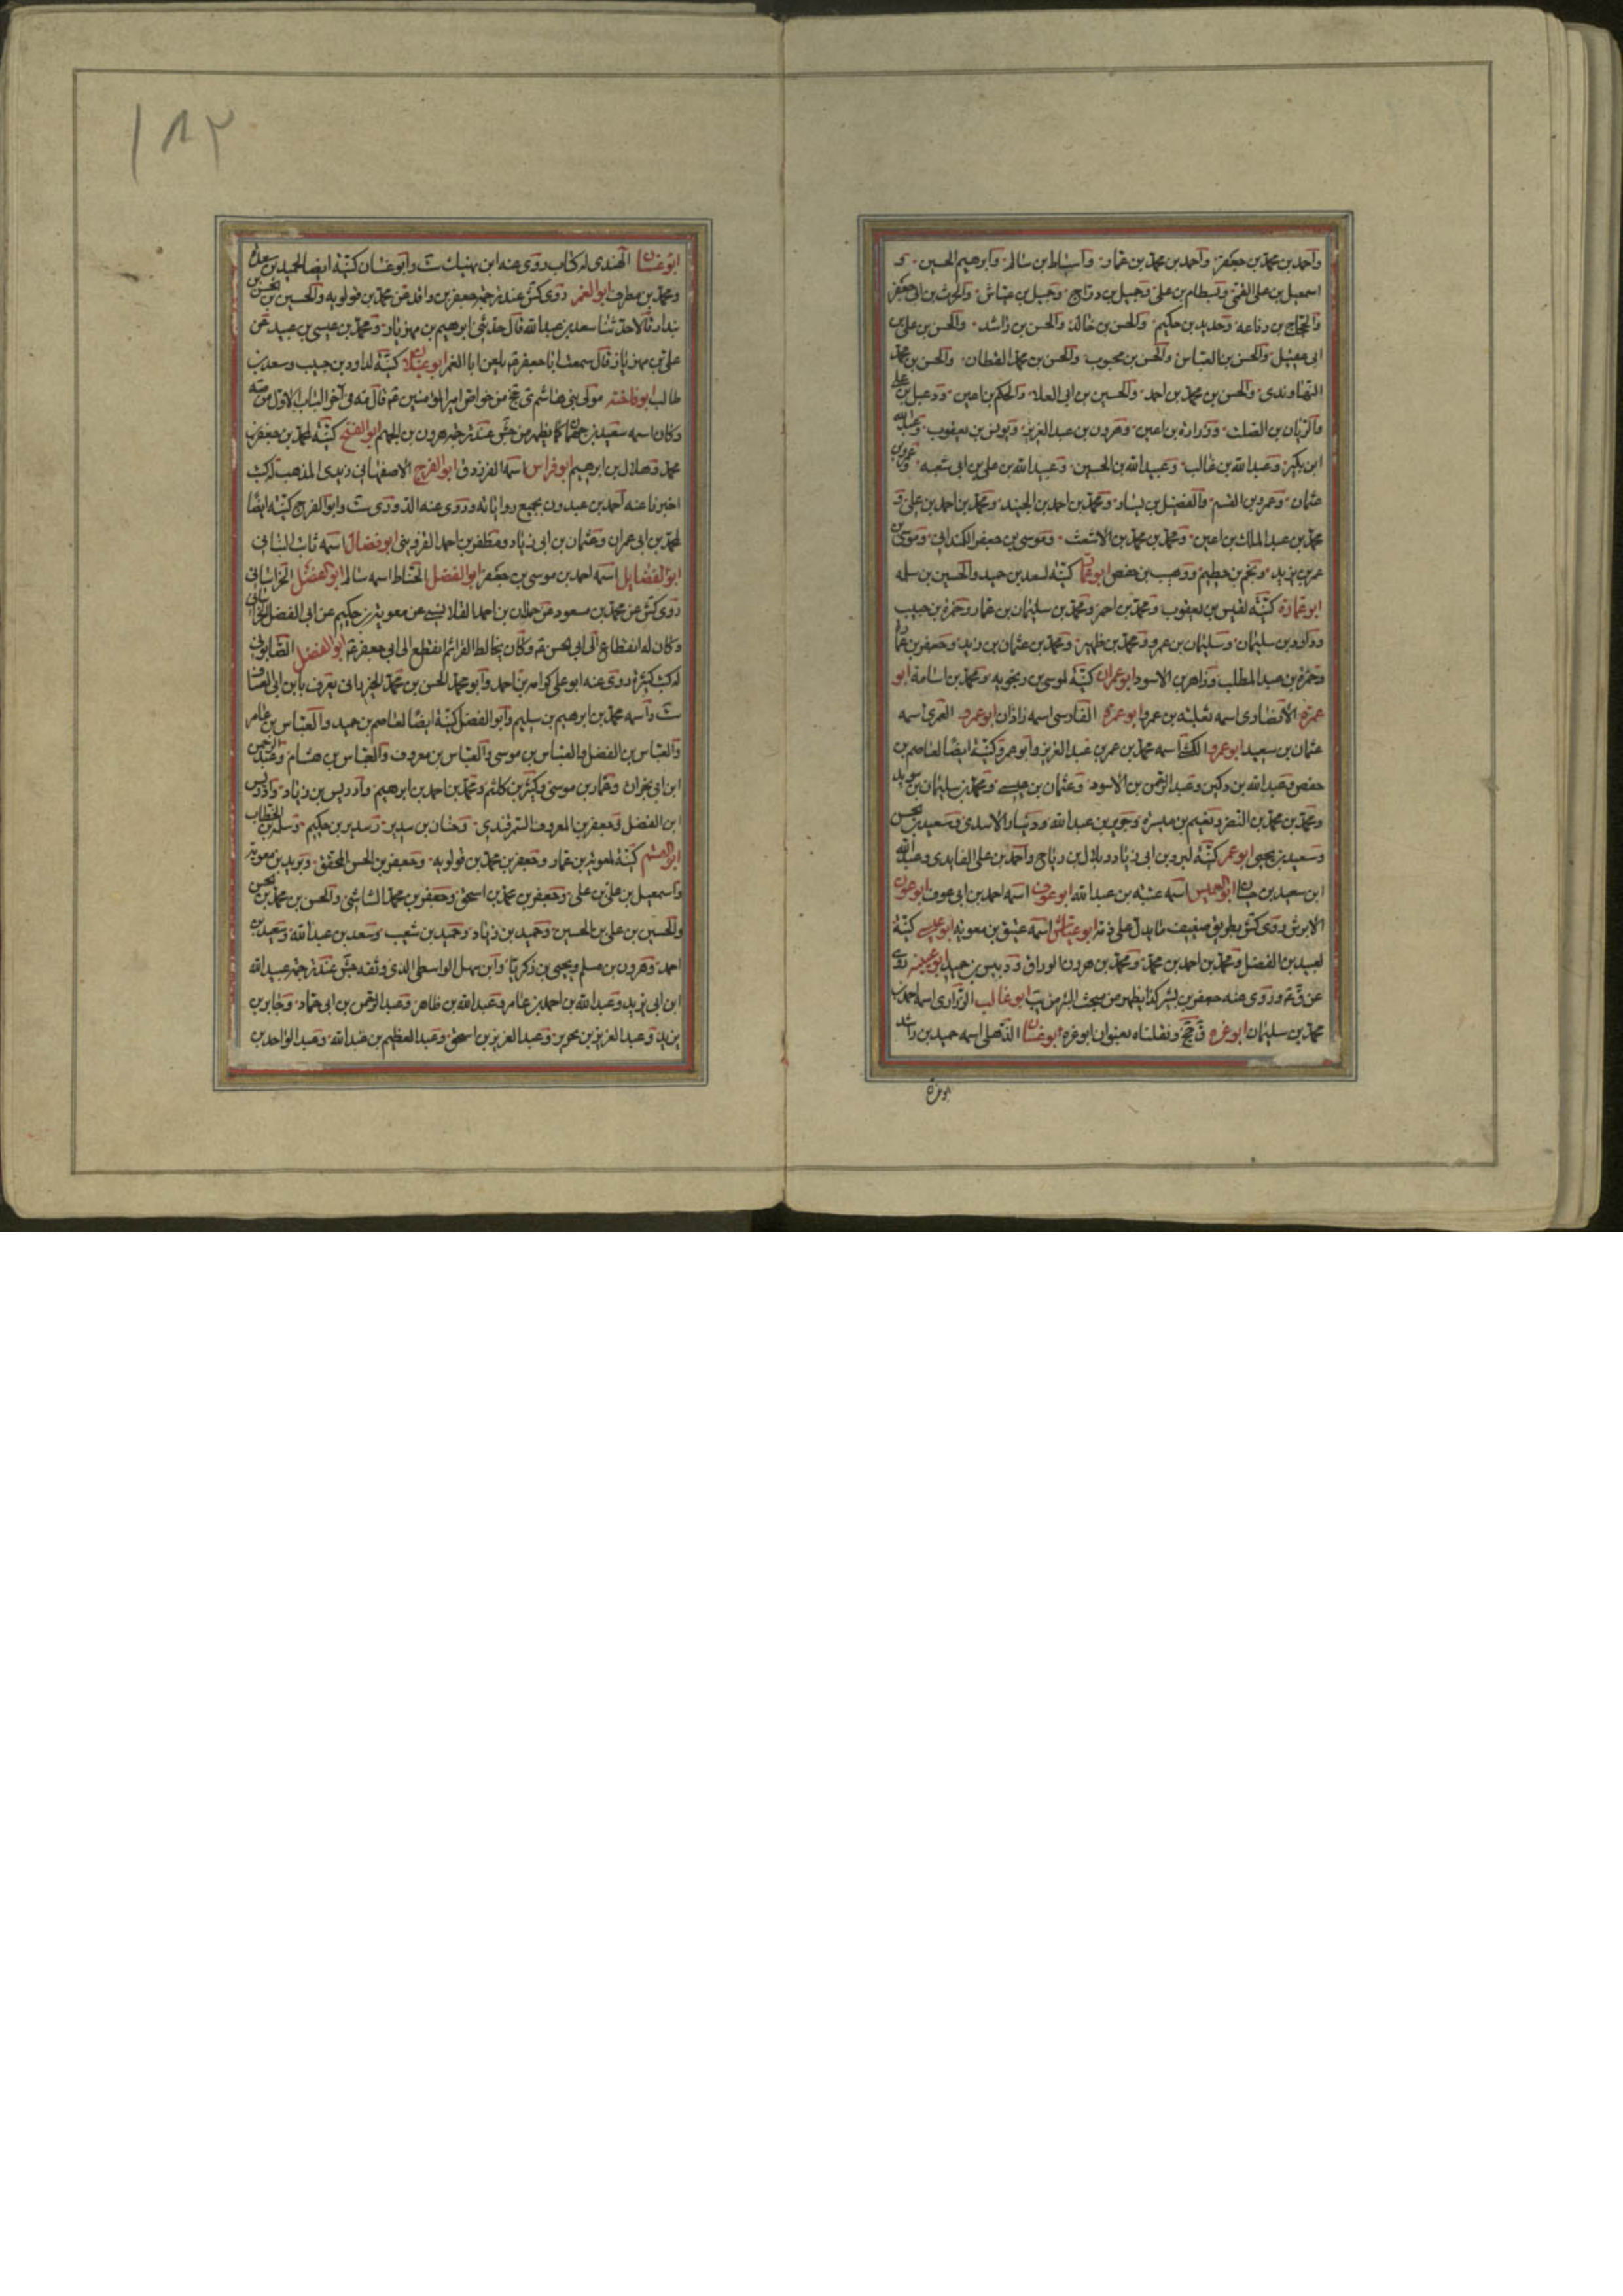 واحمد بن محمد بن جعفر واحمد بن محمد بن عمار واسباط بن سالم وابرهيم الحسين و
اسمعيل بن على القمى وبسطام بن على وجميل بن دراج وجميل بن عياش والحرث بن ابى جعفر
والحجاج بن رفاعه وحديد بن حكيم والحسن بن خالد والحسن بن راشد والحسن بن على بن
ابى عقيل والحسن بن العباس والحسن بن محبوب والحسن بن محمد القطان والحسن بن محمد
النهاوندى والحسن بن محمد بن احمد والحسين بن ابى العلا والحكم بن اعين ودعبل بن على
والريان بن الصلت وزرارة بن اعين وهرون بن عبد العزيز ويونس بن يعقوب وعبد الله
ابن بكير وعبد الله بن غالب وعبيد الله بن الحسين وعبيد الله بن على بن ابى شعبه وعمرو بن
عثمان وعمرو بن القسم والفضيل بن يسار ومحمد بن احمد بن الجنيد ومحمد بن احمد بن على و
محمد بن عبد الملك بن اعين ومحمد بن محمد بن الاشعث وموسى بن جعفر الكمندانى وموسى بن
عمر بن يزيد ونجم بن حطيم ووهب بن حفص ابو عمار كنية لسعد بن حميد والحسين بن سلمه
ابو عمارة كنية لقيس بن يعقوب ومحمد بن احمر ومحمد بن سليمان بن عمار وحمزة بن حبيب
وداود بن سليمان وسليمان بن عمرو ومحمد بن ظهير ومحمد بن عثمان بن زيد وجعفر بن عمارة
وحمزة بن عبد المطلب وزاهر بن الاسود ابو عمران كنية لموسى بن رنجويه ومحمد بن اسامة ابو
عمرة الانصارى اسمه ثعلبه بن عمرو ابو عمرة الفارسى اسمه زاذان ابو عمرو العمرى اسمه
عثمان بن سعيد ابو عمرو الكشى اسمه محمد بن عمر بن عبد العزيز وابو عمرو كنية ايضا لعاصم بن
حفص وعبد الله بن دكين وعبد الرحمن بن الاسود وعثمان بن عيسى ومحمد بن سليمان بن سويد
ومحمد بن محمد بن النضر ونعيم بن ميسرة وجرير بن عبد الله ودينار الاسدى وسعيد بن يحيى
وسعيد بن يحيى ابو عمر كنية لبرد بن ابى زياد وبلال بن رياح واحمد بن على الفايدى وعبد الله
ابن سعيد بن حيان ابو العميس اسمه عتبه بن عبد الله ابو عوف اسمه احمد بن ابى عوف ابو عون
الابرش روى كش بطريق ضعيف ما يدل على ذمه ابو عياش اسمه عتيق بن معويه ابو عيسى كنية
لعبيد بن الفضل ومحمد بن احمد بن محمد ومحمد بن هرون الوراق ودبيس بن حميد ابو عيينه روى
عن ق م وروى عنه جعفر بن بشير كذا يظهر من مبحث البئر من يب ابو غالب الزرارى اسمه احمد بن
محمد بن سليمان ابو غره ق جخ ونقلناه بعنوان ابو عره ابو غسان الذهلى اسمه حميد بن راشد
ابو غره
١٨٢
ابو غسان النهدى له كتاب روى عنه ابن نهيك ست وابو غسان كنية ايضا لحميد بن سعدان
ومحمد بن مطرف ابو الغمر روى كش عند ترجمة جعفر بن واقد عن محمد بن قولويه والحسين بن الحسن بن
بندار قالا حدثنا سعد بن عبد الله قال حدثنى ابرهيم بن مهزيار ومحمد بن عيسى بن عبيد عن
على بن مهزيار قال سمعت ابا جعفر م يلعن ابا الغمر ابو غيلان كنية لداود بن حبيب وسعد بن
طالب ابو فاخته مولى بنى هاشم ى جخ من خواص امير المؤمنين م قال مه فى آخر الباب الاول من صه
وكان اسمه سعيد بن جمهان كما يظهر من جش عند ترجمة هرون بن الجهم ابو الفتح كنية لمحمد بن جعفر بن
محمد وهلال بن ابرهيم ابو فراس اسمه الفرزدق ابو الفرج الاصفهانى زيدى المذهب له كتب
اخبرنا عنه احمد بن عبدون بجميع رواياته وروى عنه الدورى ست وابو الفرج كنية ايضا
لمحمد بن ابى عمران وعثمان بن ابى زياد ومظفر بن احمد القزوينى ابو فضالة اسمه ثابت البنانى
ابو الفضايل اسمه احمد بن موسى بن جعفر ابو الفضل الحناط اسمه سالم ابو الفضل الخراسانى
روى كش عن محمد بن مسعود عن حمدان بن احمد القلانسى عن معوية بن حكيم عن ابى الفضل الخراسانى
وكان له انقطاع الى ابى الحسن م وكان يخالط القراء ثم انقطع الى ابى جعفر م ابو الفضل الصابونى
له كتب كثيرة روى عنه ابو على كرامه بن احمد وابو محمد الحسن بن محمد الخيزرانى يعرف بابن ابى العساف
ست واسمه محمد بن ابرهيم بن سليم وابو الفضل كنية ايضا لعاصم بن حميد والعباس بن عامر
والعباس بن الفضل والعباس بن موسى والعباس بن معروف والعباس بن هشام وعبد الرحمن
ابن ابى نجران وعمار بن موسى وكثير بن كلثم ومحمد بن احمد بن ابرهيم وادريس بن زياد وادريس
ابن الفضل وجعفر بن المعروف السمرقندى وحنان بن سدير وسدير بن حكيم وسلمة بن الخطاب
ابو القسم كنية لمعوية بن عمار وجعفر بن محمد بن قولويه وجعفر بن الحسن المحقق وبريد بن معوية
واسمعيل بن على بن على وجعفر بن محمد بن اسحق وجعفر بن محمد الشاشى والحسن بن محمد بن الحسن
والحسين بن على بن الحسين وحميد بن زياد وحميد بن شعيب وسعد بن عبد الله وسعيد بن
احمد وهرون بن مسلم ويحيى بن زكريا وابن سهل الواسطى الذى وثقه جش عند ترجمة عبيد الله
ابن ابى زيد وعبد الله بن احمد بن عامر وعبد الله بن طاهر وعبد الرحمن بن ابى حماد وجابر بن
يزيد وعبد العزيز بن محرير وعبد العزيز بن اسحق وعبد العظيم بن عبد الله وعبد الواحد بن